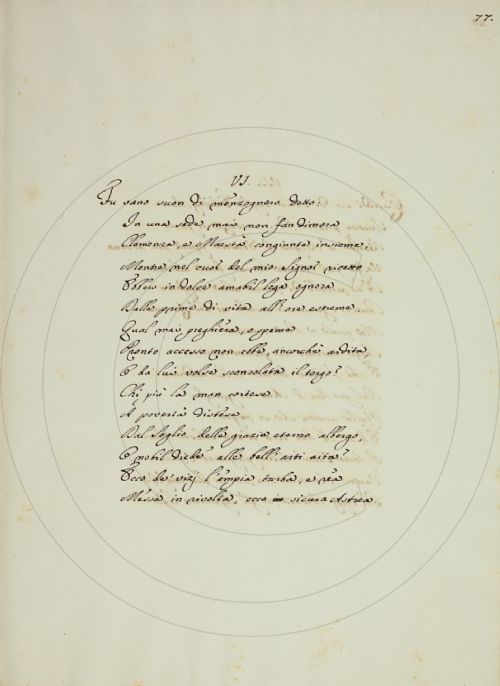 77.
VI.
Fu vano suon di menzognero detto:
In una sede mai non fan dimora
Clemenza, e Maestà congiunte insieme;
Mentre nel cuor del mio Signor ricetto
Ebbero in dolce amabil lega ognora
Dalle prime di vita all' ore estreme
Qual mai preghiera, o speme
Pronto accesso non ebbe, ancorchè ardita,
E da lui volse sconsolata il tergo?
Chi più la man cortese
A povertà distese
Dal Soglio delle grazie eterno albergo,
E nobil diede alle bell' arti aita?
Ecco de' vizj l'empia turba, e rea
Messa in rivolta, ecco in sicura Astrea